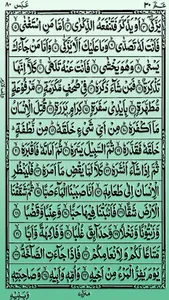 عَمَّ ٣٠ عَبَسَ ٨٠
يَزَّكّٰىۤ ۝ اَوْ يَذَّكَّرُ فَتَنْفَعَهُ الذِّكْرٰى ۝ اَمَّا مَنِ اسْتَغْنٰى ۝
فَاَنْتَ لَهٗ تَصَدّٰى ۝ وَمَا عَلَيْكَ اَلَّا يَزَّكّٰى ۝ وَاَمَّا مَنْ جَآءَكَ
يَسْعٰى ۝ وَهُوَ يَخْشٰى ۝ فَاَنْتَ عَنْهُ تَلَهّٰى ۝ كَلَّاۤ اِنَّهَا
تَذْكِرَةٌ ۝ فَمَنْ شَآءَ ذَكَرَهٗ ۝ فِيْ صُحُفٍ مُّكَرَّمَةٍ ۝ مَّرْفُوْعَةٍ
مُّطَهَّرَةٍۭ ۝ بِاَيْدِيْ سَفَرَةٍ ۝ كِرَامٍۭ بَرَرَةٍ ۝ قُتِلَ الْاِنْسَانُ
مَاۤ اَكْفَرَهٗ ۝ مِنْ اَيِّ شَيْءٍ خَلَقَهٗ ۝ مِنْ نُّطْفَةٍ
خَلَقَهٗ فَقَدَّرَهٗ ۝ ثُمَّ السَّبِيْلَ يَسَّرَهٗ ۝ ثُمَّ اَمَاتَهٗ فَاَقْبَرَهٗ ۝
ثُمَّ اِذَا شَآءَ اَنْشَرَهٗ ۝ كَلَّا لَمَّا يَقْضِ مَاۤ اَمَرَهٗ ۝ فَلْيَنْظُرِ
الْاِنْسَانُ اِلٰى طَعَامِهٖۤ ۝ اَنَّا صَبَبْنَا الْمَآءَ صَبًّا ۝ ثُمَّ شَقَقْنَا
الْاَرْضَ شَقًّا ۝ فَاَنْۢبَتْنَا فِيْهَا حَبًّا ۝ وَّعِنَبًا وَّقَضْبًا ۝
وَّزَيْتُوْنًا وَّنَخْلًا ۝ وَّحَدَآئِقَ غُلْبًا ۝ وَّفَاكِهَةً وَّاَبًّا ۝
مَّتَاعًا لَّكُمْ وَلِاَنْعَامِكُمْ ۝ فَاِذَا جَآءَتِ الصَّآخَّةُ ۝
يَوْمَ يَفِرُّ الْمَرْءُ مِنْ اَخِيْهِ ۝ وَاُمِّهٖ وَاَبِيْهِ ۝ وَصَاحِبَتِهٖ
وَبَنِيْهِ